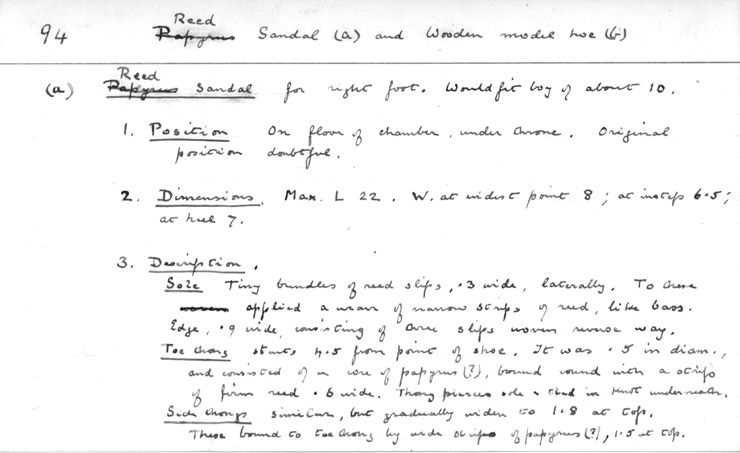 Reed
94 Papyrus Sandal (a) and Wooden model hoe (b)
Reed
(a) Papyrus Sandal for right foot. Would fit boy of about 10.
1. Position On floor of chamber, under throne. Original
position doubtful.
2. Dimensions. Max. L 22. W. at widest point 8; at instep 6.5;
at heel 7.
3. Description.
Sole Tiny bundles of reed slips, .3 wide, laterally. To these
woven applied a weave of narrow strips of reed, like bass.
Edge, .9 wide, consisting of three slips woven reverse way.
Toe thong starts 4.5 from point of shoe. It was .5 in diam.,
and consisted of a core of papyrus (?), bound round with a strip
of firm reed .6 wide. Thong pierces sole & tied in knot underneath.
Side thongs similar, but gradually widen to 1.8 at top.
These bound to toe thong by wide strips of papyrus (?), 1.5 at top.